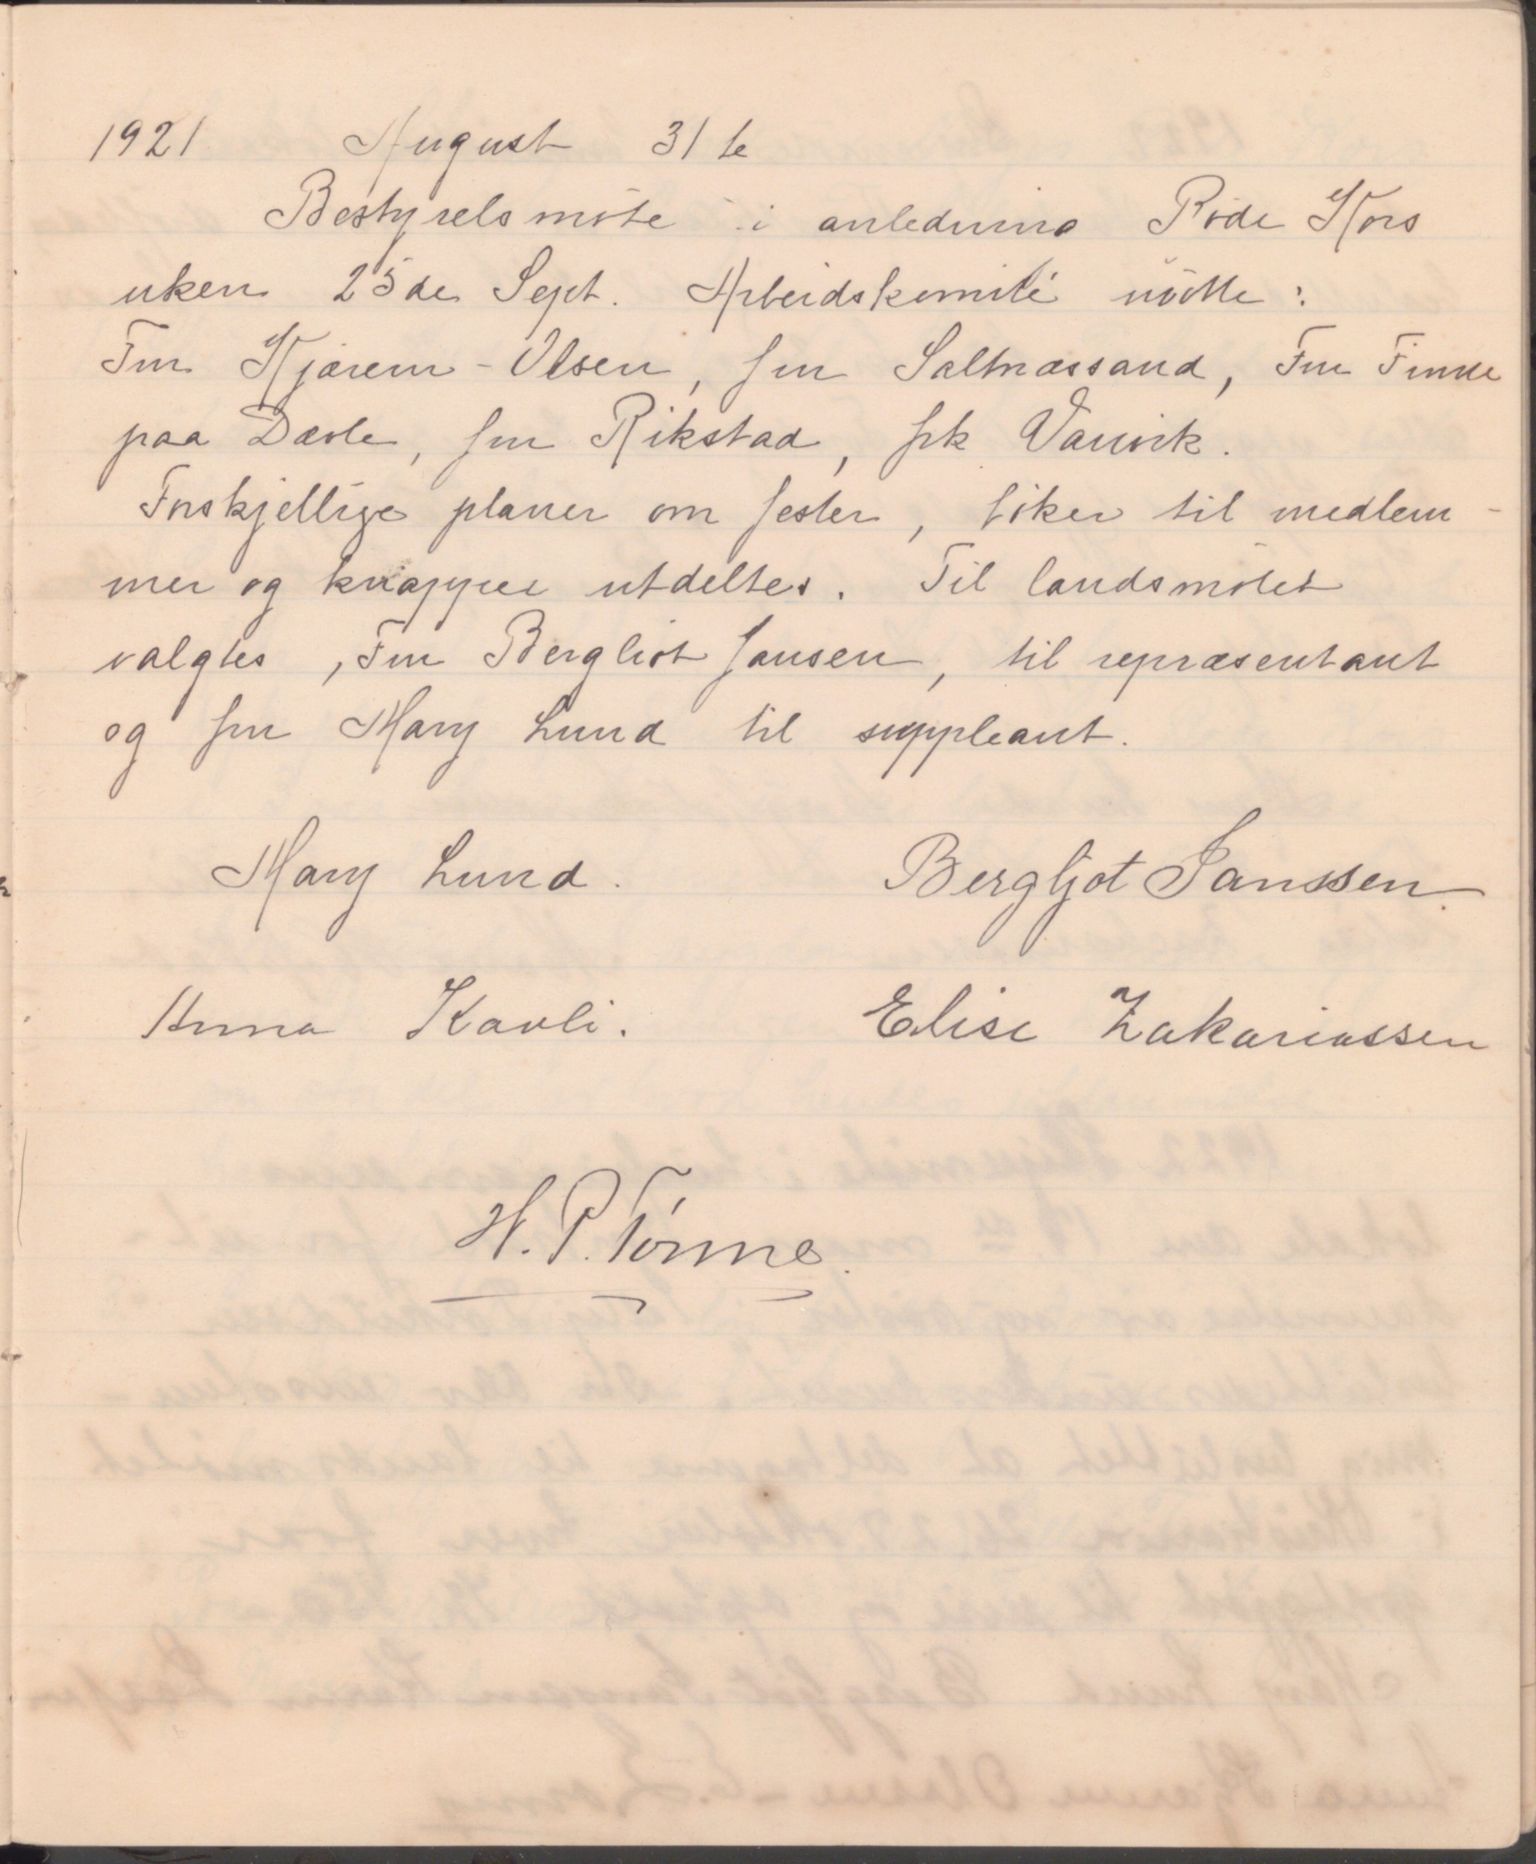 1921 August 31te
Bestyrelsmöte i anledning Röde Kors
uken 25de Sept. Arbeidskomité :
Fru Kjærem-Olsen, fru Saltnæssand, Fru Finne
paa Dævle, fru Rikstad, frk Vanvik.
Forskjellige planer om fester, töker til medlem-
mer og knapper utdeltes. Til landsmötet
valgtes, Fru Bergliot Jansen, til repræsentant
og fru Mary Lund til suppleant.
Mary Lund. Bergljot Janssen.
Anna Kavli. Elise Zakariassen
H. P. Tönne.